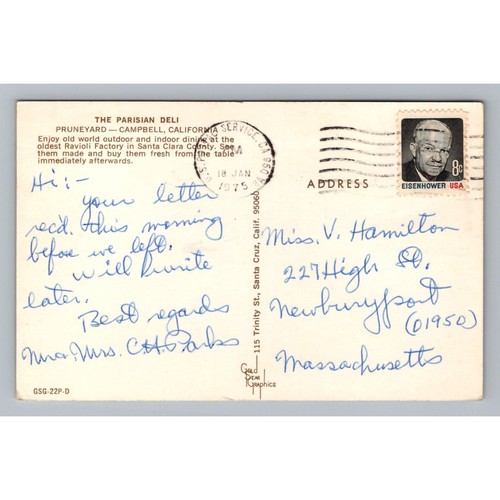 THE PARISIAN DELI
PRUNEYARD — CAMPBELL, CALIFORNIA
Enjoy old world outdoor and indoor dining at the
oldest Ravioli Factory in Santa Clara County. See
them made and buy them fresh from the table
immediately afterwards.
Hi:-
Your letter
rec'd. this morning
before we left.
Will write
later.
Best regards
Mr & Mrs. C.H. Parks
GSG-22P-D
115 Trinity St., Santa Cruz, Calif. 95060
Gold Seal Graphics
SERVICE CA 950
PM
18 JAN
1975
8c
EISENHOWER USA
ADDRESS
Miss. V. Hamilton
227 High St.
Newburyport
(01950)
Massachusetts